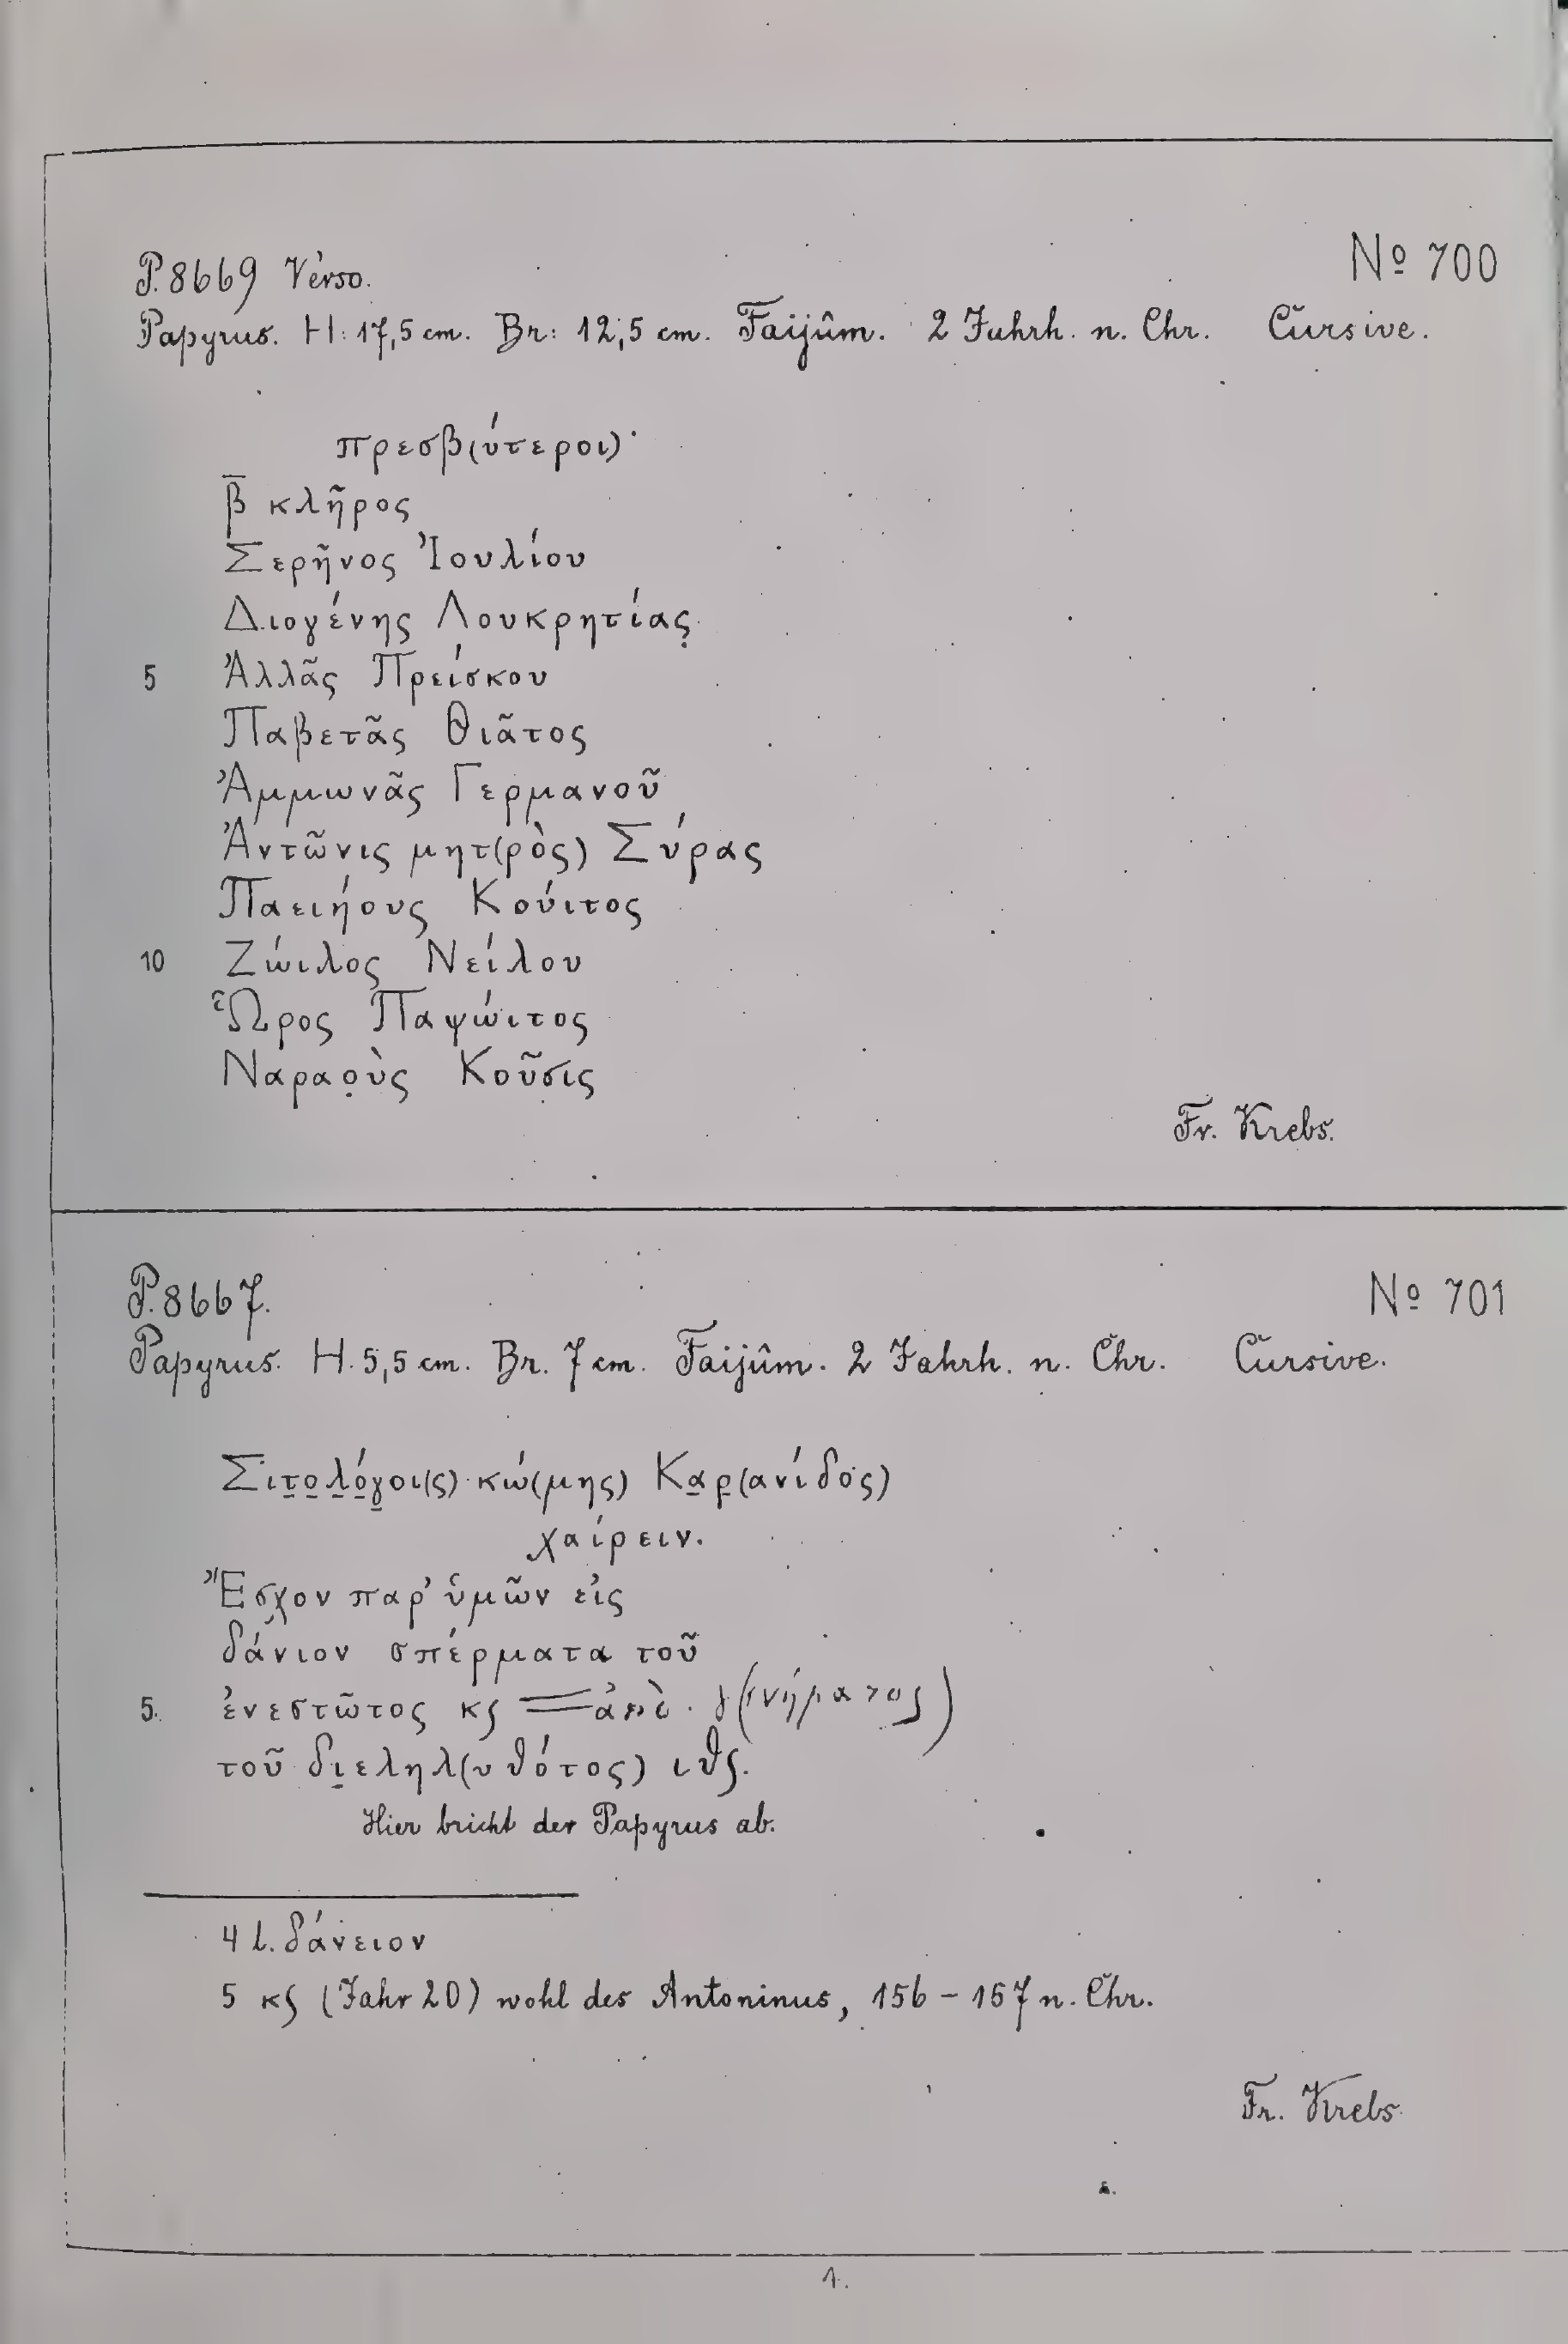 P. 8669 Verso.
No 700
Papyrus. H: 17,5 cm. Br: 12,5 cm. Faijûm. 2 Jahrh. n. Chr. Cursive.
πρεσβ(ύτεροι)·
β̄ κλῆρος
Σερῆνος Ἰουλίου
Διογένης Λουκρητίας̣
5 Ἀλλᾶς Πρείσκου
Παβετᾶς Θιᾶτος
Ἀμμωνᾶς Γερμανοῦ
Ἀντῶνις μητ(ρὸς) Σύρας
Παειήους Κούιτος
10 Ζώιλος Νείλου
Ὧρος Παψώιτος
Ναραο̣ὺς Κοῦσις
Fr. Krebs.
P. 8667.
No 701
Papyrus. H. 5,5 cm. Br. 7 cm. Faijûm. 2 Jahrh. n. Chr. Cursive.
Σιτ̣ο̣λ̣ό̣γ̣οι(ς) κώ(μης) Κα̣ρ̣(ανίδος)
χαίρειν.
Ἔσχον παρ' ὑμῶν εἰς
δάνιον σπέρματα τοῦ
5. ἐνεστῶτος κς ἀπὸ γ(ενήματος)
τοῦ δι̣εληλ(υθότος) ιθς.
Hier bricht der Papyrus ab.
4 l. δάνειον
5 κς (Jahr 20) wohl des Antoninus, 156 - 157 n. Chr.
Fr. Krebs
1.